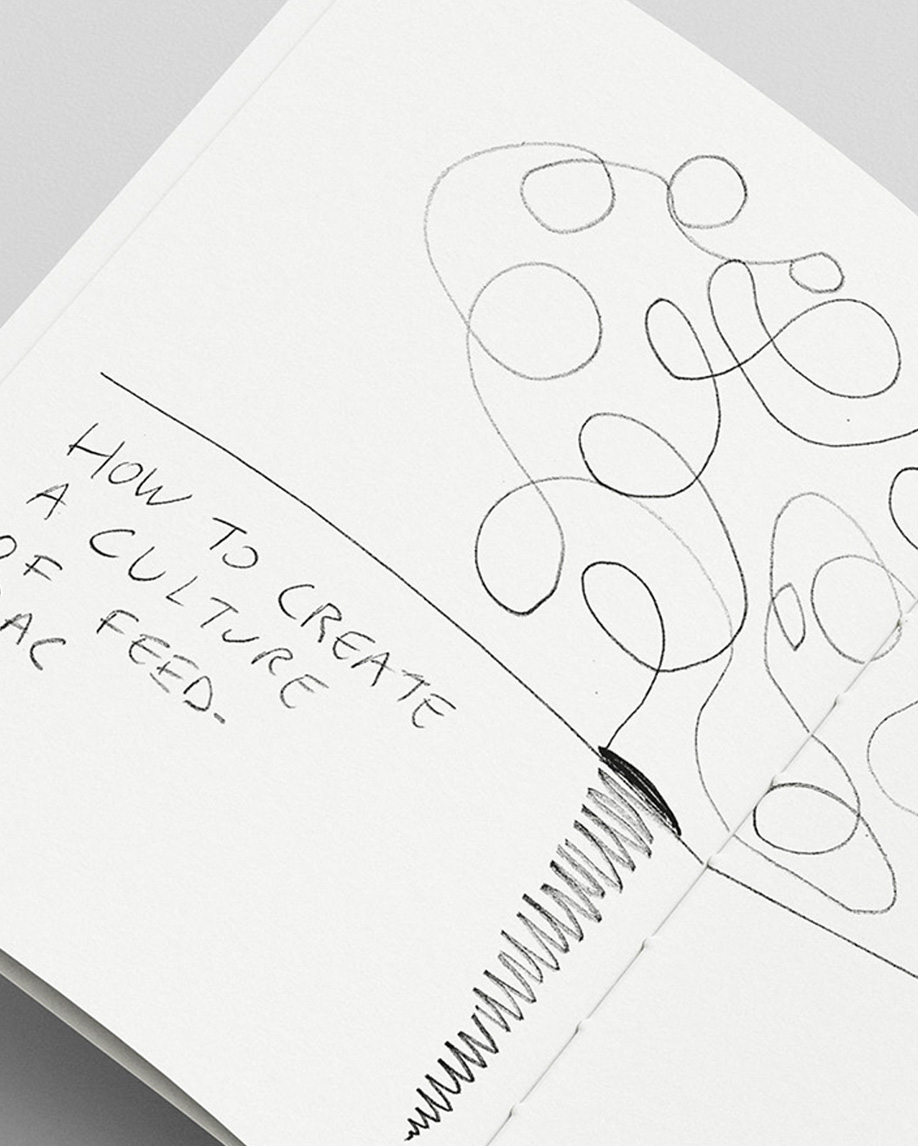 HOW TO CREATE
A CULTURE
OF FEED-
AC